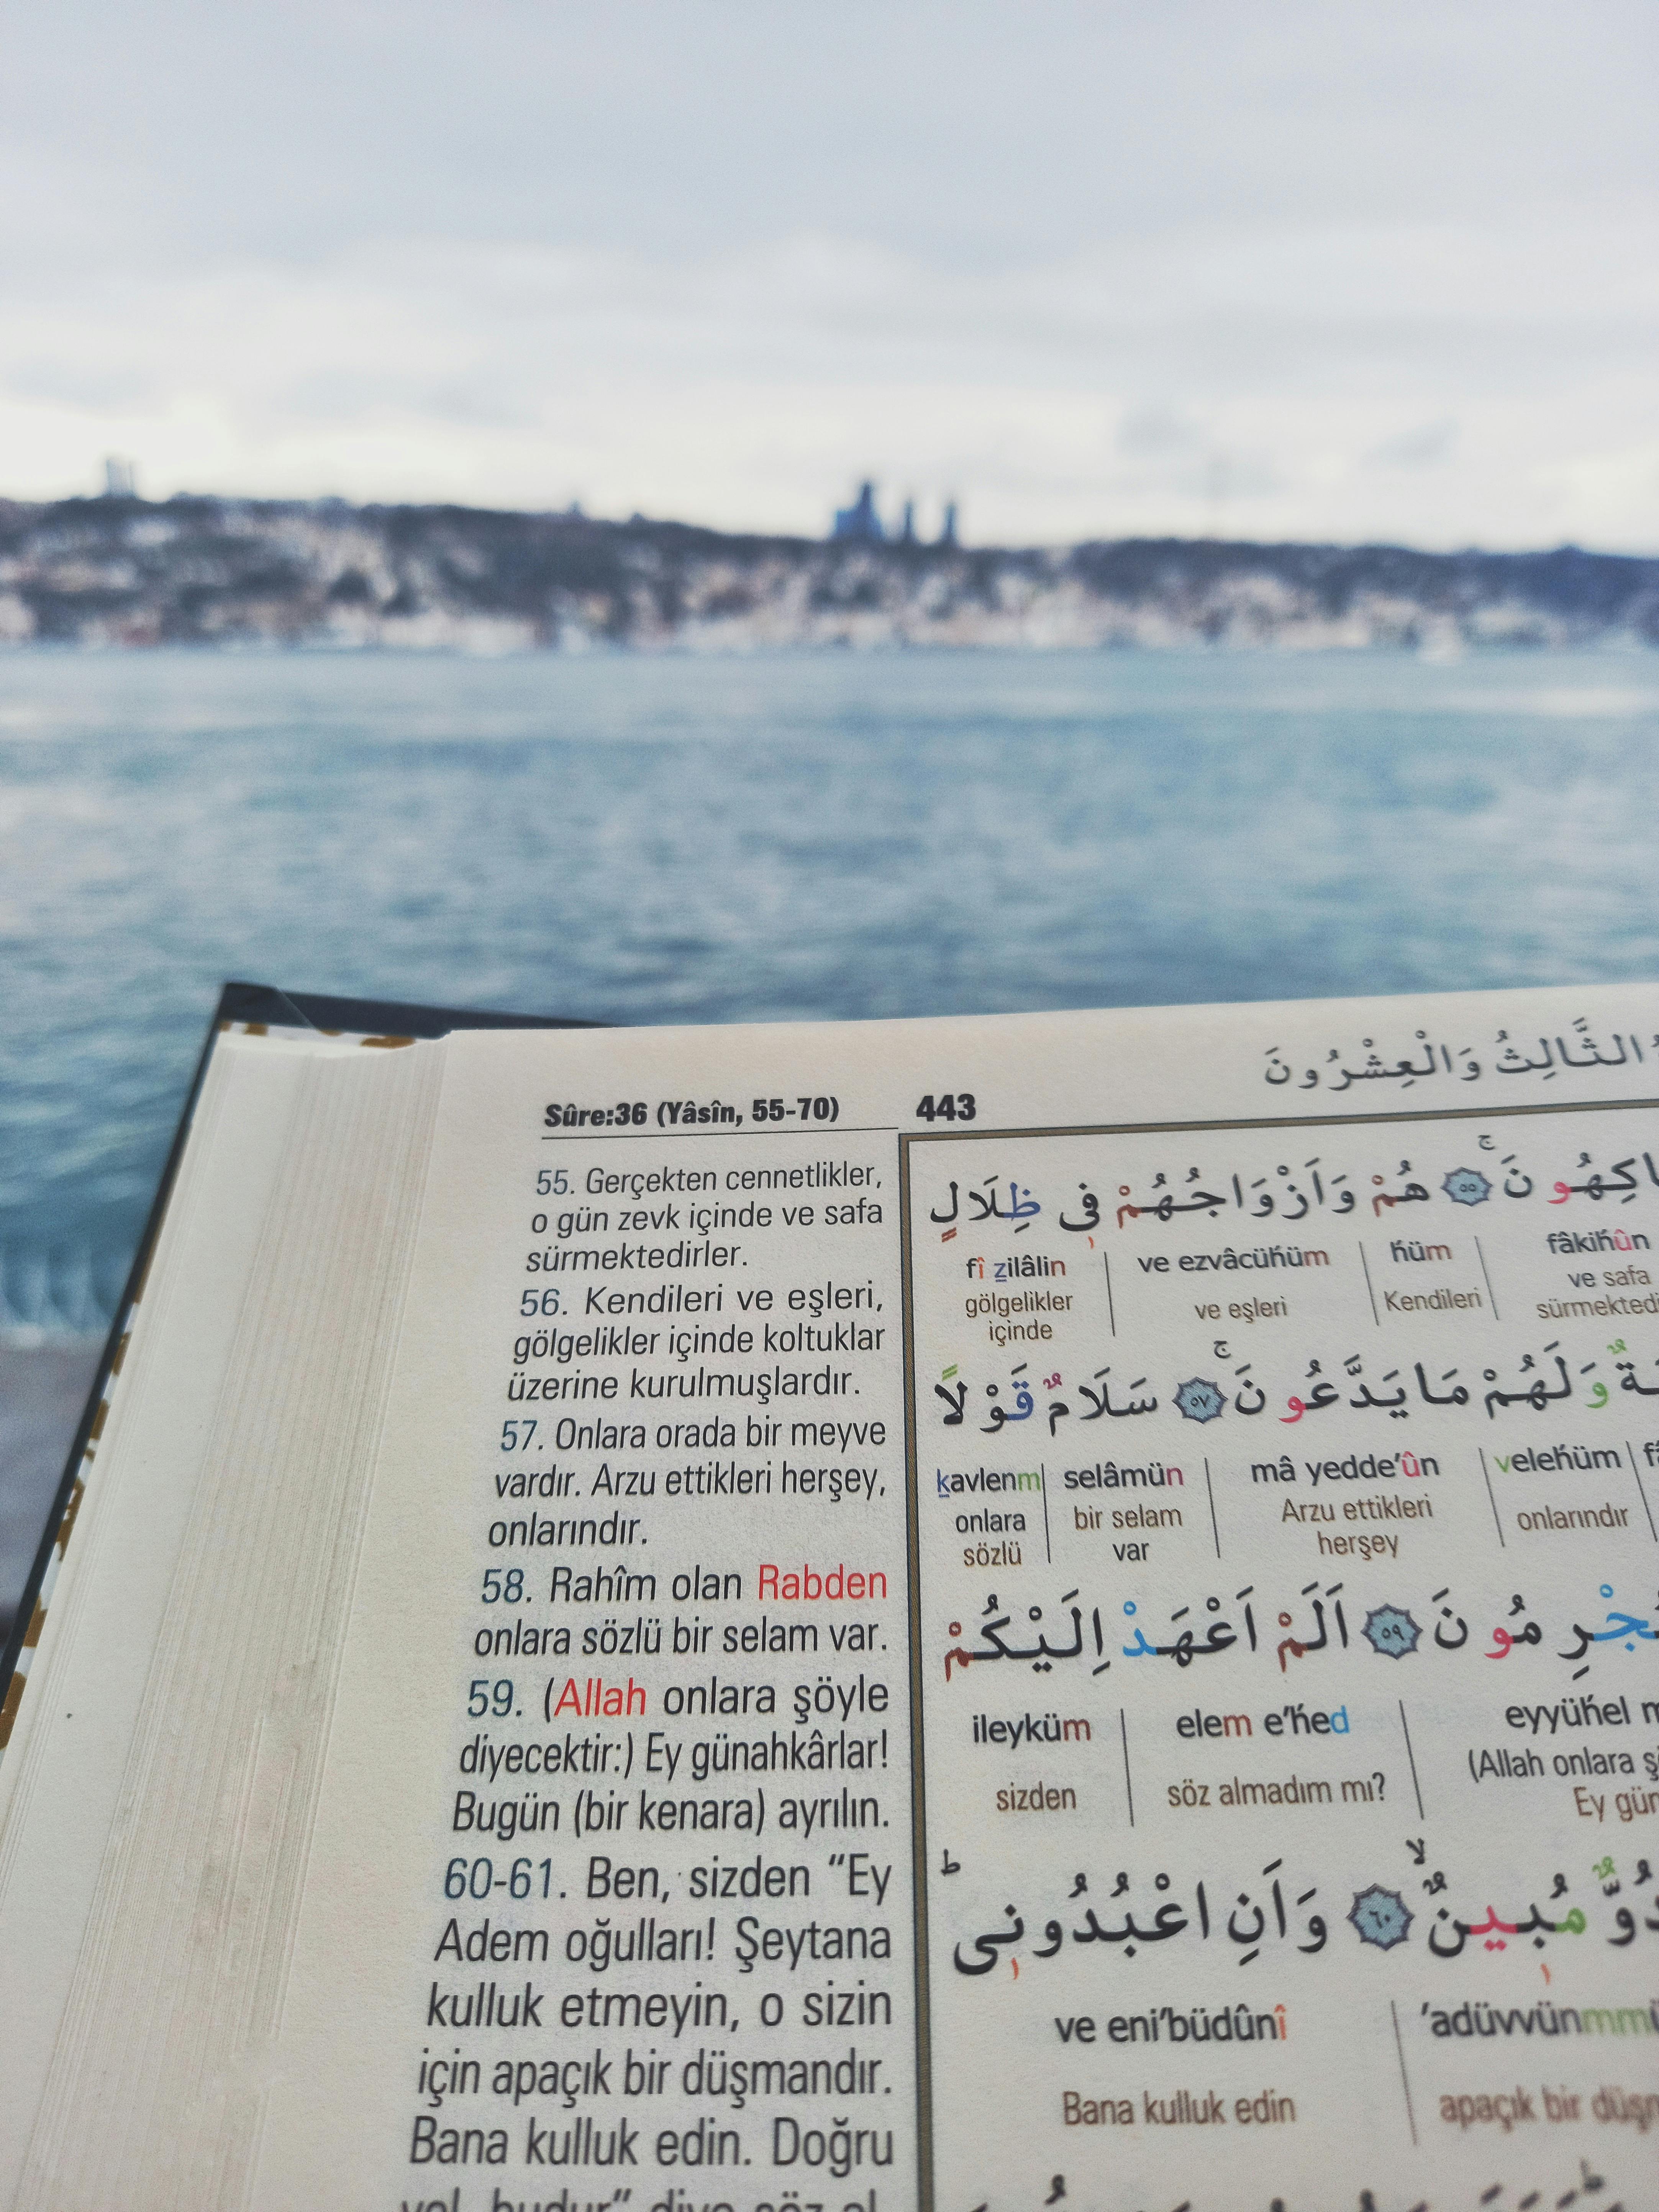 Sûre:36 (Yâsîn, 55-70)
443
الثَّالِثُ وَالْعِشْرُونَ
55. Gerçekten cennetlikler,
o gün zevk içinde ve safa
sürmektedirler.
56. Kendileri ve eşleri,
gölgelikler içinde koltuklar
üzerine kurulmuşlardır.
57. Onlara orada bir meyve
vardır. Arzu ettikleri herşey,
onlarındır.
58. Rahîm olan Rabden
onlara sözlü bir selam var.
59. (Allah onlara şöyle
diyecektir:) Ey günahkârlar!
Bugün (bir kenara) ayrılın.
60-61. Ben, sizden “Ey
Adem oğulları! Şeytana
kulluk etmeyin, o sizin
için apaçık bir düşmandır.
Bana kulluk edin. Doğru
اكِهُونَ ۚ ﴿٥٥﴾ هُمْ وَاَزْوَاجُهُمْ فٖى ظِلَالٍ
fî zilâlin ve ezvâcühüm hüm fâkihûn
gölgelikler ve eşleri Kendileri ve safa
içinde sürmektedi
ةٌ وَلَهُمْ مَا يَدَّعُونَ ۚ ﴿٥٧﴾ سَلَامٌ قَوْلًا
kavlenm selâmün mâ yedde’ûn velehüm
onlara bir selam Arzu ettikleri onlarındır
sözlü var herşey
جْرِمُونَ ﴿٥٩﴾ اَلَمْ اَعْهَدْ اِلَيْكُمْ
ileyküm elem e’hed eyyühel m
sizden söz almadım mı? (Allah onlara ş
Ey gün
دُوٌّ مُبٖينٌ ۙ ﴿٦٠﴾ وَاَنِ اعْبُدُونٖى ؕ
ve eni’büdûnî ’adüvvünmmü
Bana kulluk edin apaçık bir düşm